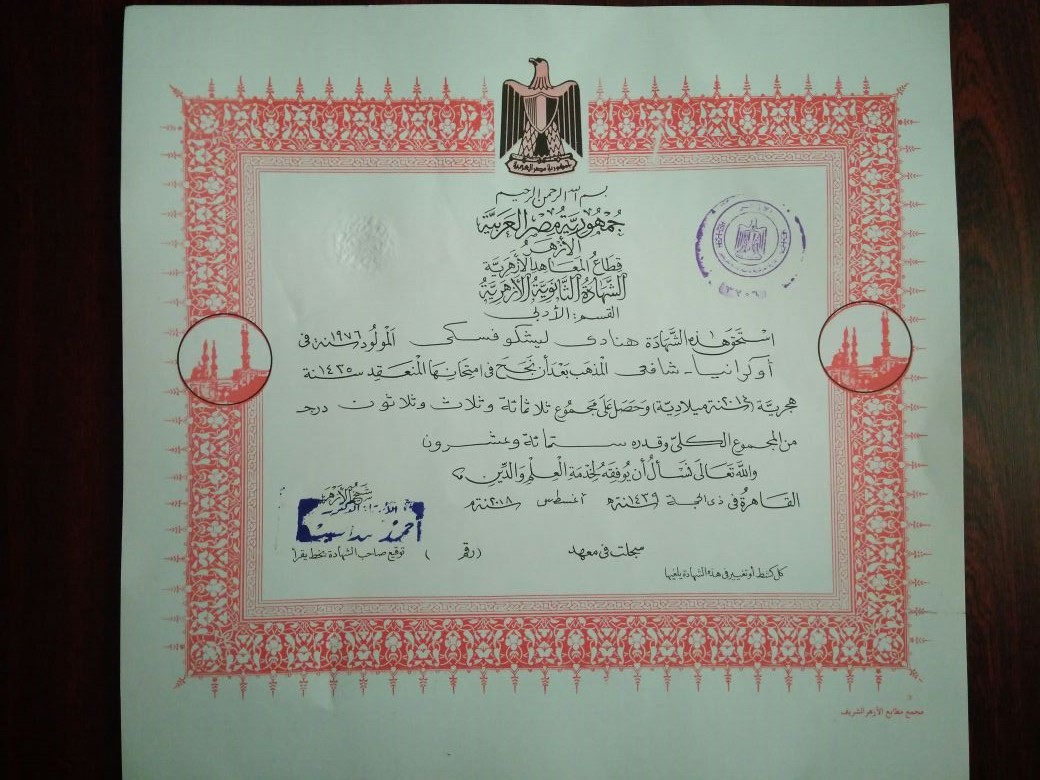 جمهورية مصر العربية
بسم الله الرحمن الرحيم
جمهورية مصر العربية
الأزهر
قطاع المعاهد الأزهرية
الشهادة الثانوية الأزهرية
القسم: الأدبى
استحق هذه الشهادة هنادى ليشكوفسكى المولود سنة ١٩٧٦ فى
أوكرانيا - شافعى المذهب بعد أن نجح فى امتحانها المنعقد سنة ١٤٣٥
هجرية (سنة ٢٠١٤ ميلادية) وحصل على مجموع ثلاثمائة وثلاث وثلاثون درجـ
من المجموع الكلى وقدره ستمائة وعشرون
والله تعالى نسأل أن يوفقه لخدمة العلم والدين
القاهرة فى ذى الحجة سنة ١٤٣٩ هـ أغسطس سنة ٢٠١٨ م
شيخ الأزهر
الأستاذ الدكتور
أحمد
سجلت فى معهد (رقم )
توقيع صاحب الشهادة بخط يقرأ
كل كشط أو تغيير فى هذه الشهادة يلغيها
مجمع مطابع الأزهر الشريف